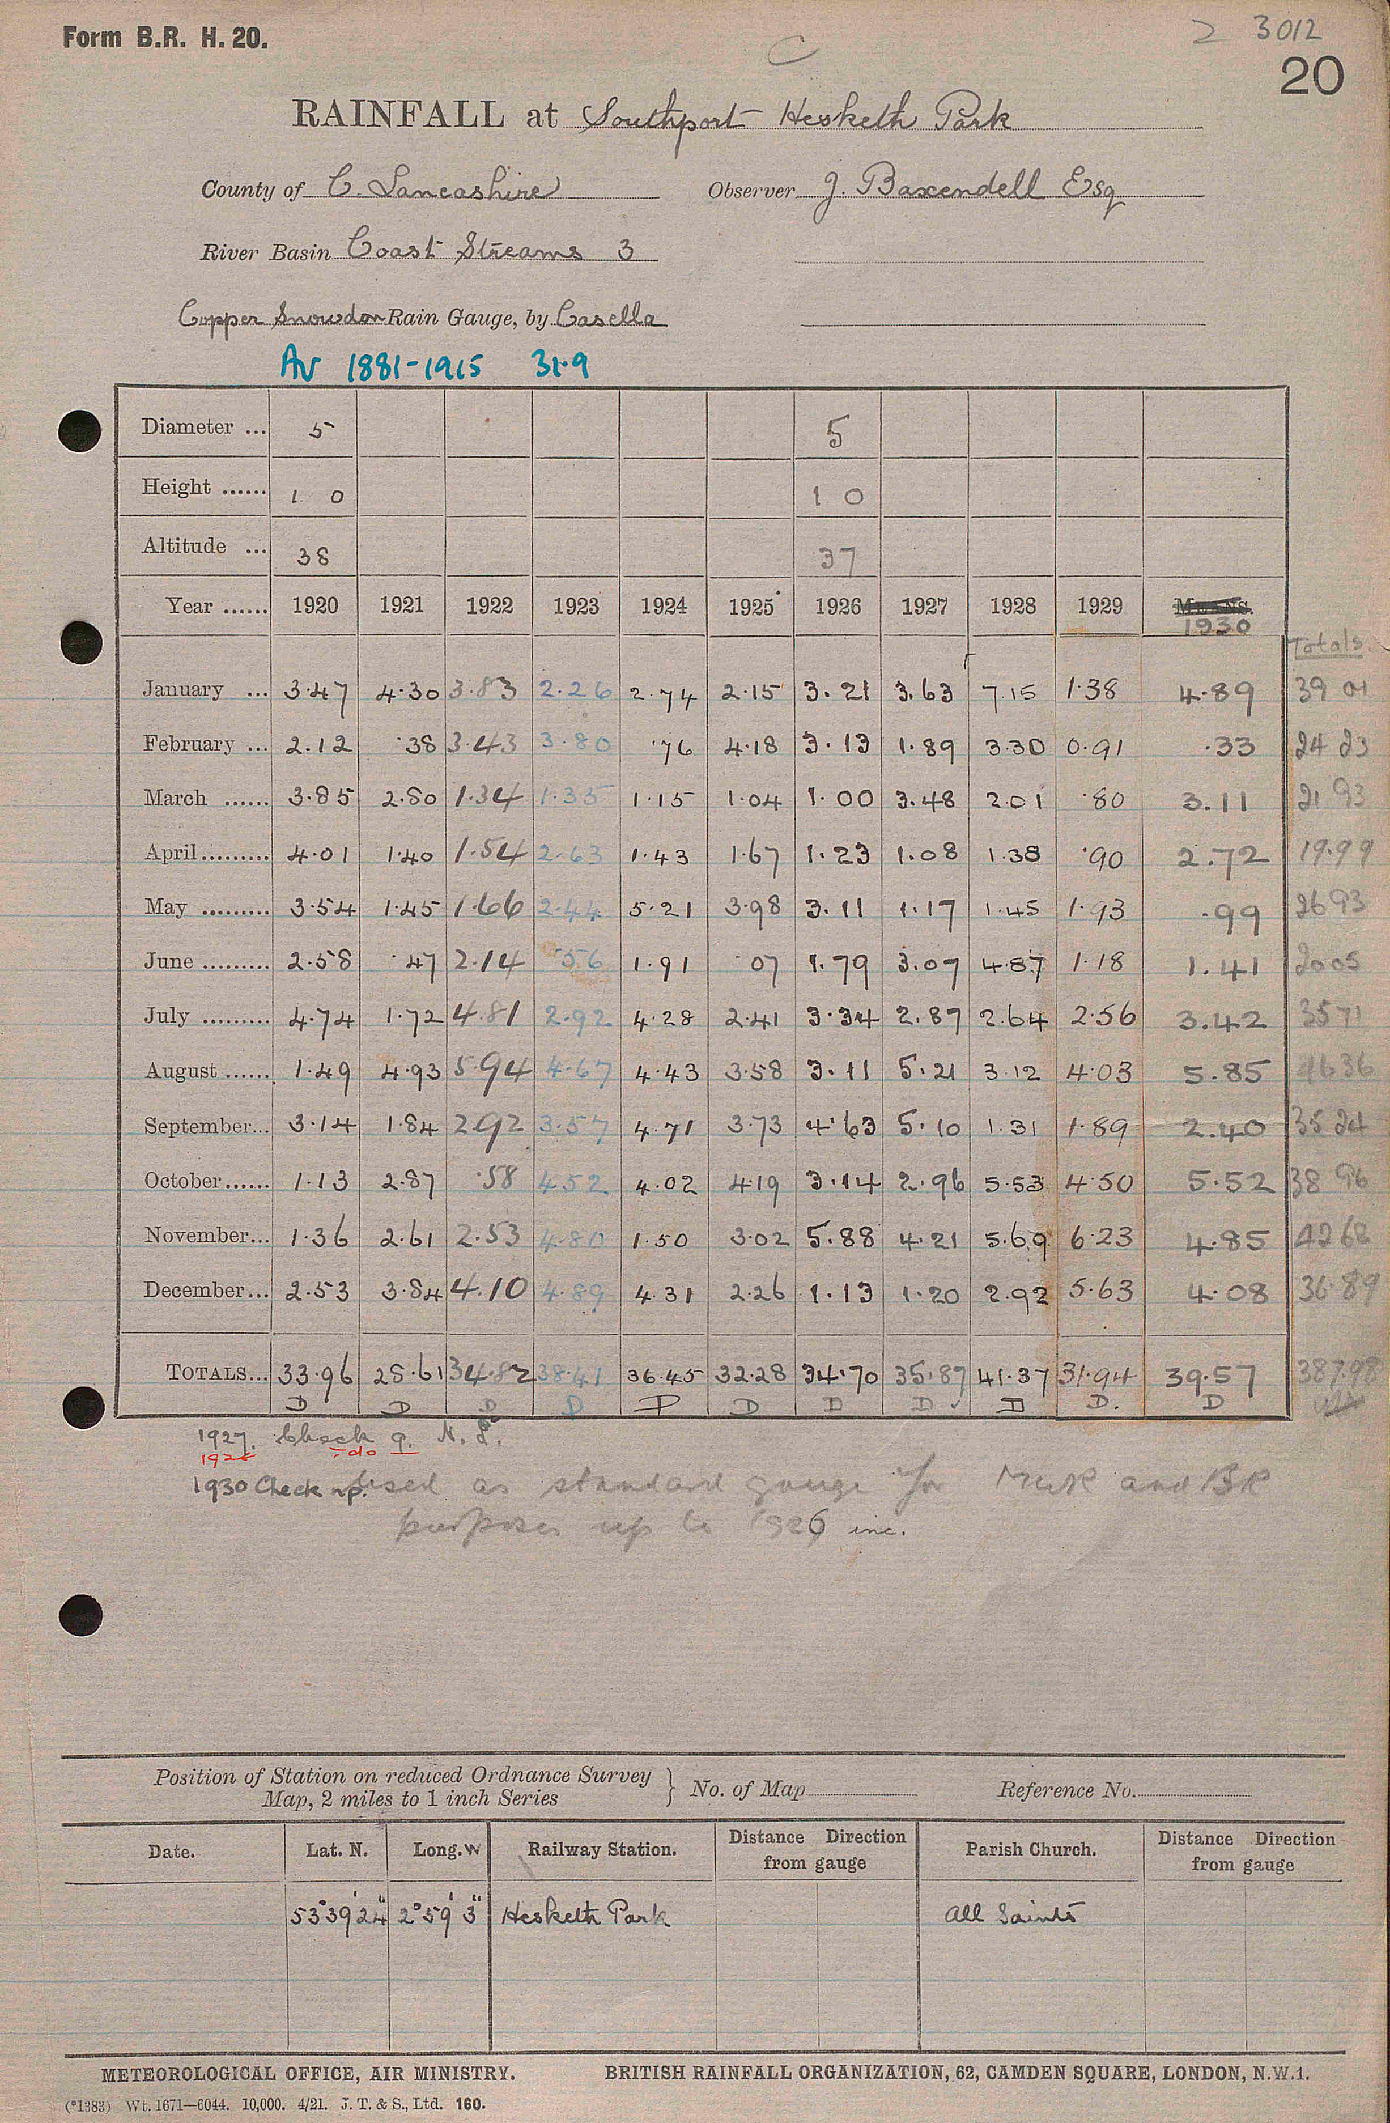 Form B.R. H. 20.
2 3012
C
20
RAINFALL at Southport Hesketh Park
County of C. Lancashire Observer J. Baxendell Esq
River Basin Coast Streams 3
Copper Snowdon Rain Gauge, by Casella
Av 1881-1915 31.9
Diameter ... 5 5
Height ...... 1 0 1 0
Altitude ... 38 37
Year ...... 1920 1921 1922 1923 1924 1925 1926 1927 1928 1929 MEANS. 1930 Totals
January ... 3.47 4.30 3.83 2.26 2.74 2.15 3.21 3.63 7.15 1.38 4.89 39 01
February ... 2.12 .38 3.43 3.80 .76 4.18 3.13 1.89 3.30 0.91 .33 24 23
March ...... 3.85 2.80 1.34 1.35 1.15 1.04 1.00 3.48 2.01 .80 3.11 21 93
April ......... 4.01 1.40 1.54 2.63 1.43 1.67 1.23 1.08 1.38 .90 2.72 19.99
May ......... 3.54 1.45 1.66 2.44 5.21 3.98 3.11 1.17 1.45 1.93 .99 26 93
June ......... 2.58 .47 2.14 .56 1.91 .07 1.79 3.07 4.87 1.18 1.41 20 05
July ......... 4.74 1.72 4.81 2.92 4.28 2.41 3.34 2.87 2.64 2.56 3.42 35 71
August ...... 1.49 4.93 5.94 4.67 4.43 3.58 3.11 5.21 3.12 4.03 5.85 46 36
September... 3.14 1.84 2.92 3.57 4.71 3.73 4.63 5.10 1.31 1.89 2.40 35 24
October...... 1.13 2.87 .58 4.52 4.02 4.19 3.14 2.96 5.53 4.50 5.52 38 96
November... 1.36 2.61 2.53 4.80 1.50 3.02 5.88 4.21 5.69 6.23 4.85 42 68
December... 2.53 3.84 4.10 4.89 4.31 2.26 1.13 1.20 2.92 5.63 4.08 36.89
TOTALS... 33.96 28.61 34.82 38.41 36.45 32.28 34.70 35.87 41.37 31.94 39.57 387.98
D D D D D D D D D D. D
1927. Check g. N. L.
1928 -do-
1930 Check up. Used as standard gauge for MWR and BR
purposes up to 1926 inc.
Position of Station on reduced Ordnance Survey
Map, 2 miles to 1 inch Series } No. of Map Reference No.
Date. Lat. N. Long. W Railway Station. Distance Direction from gauge Parish Church. Distance Direction from gauge
53°39'24" 2°59'3" Hesketh Park All Saints
METEOROLOGICAL OFFICE, AIR MINISTRY. BRITISH RAINFALL ORGANIZATION, 62, CAMDEN SQUARE, LONDON, N.W.1.
(*1383) Wt. 1671—6044. 10,000. 4/21. J. T. & S., Ltd. 160.